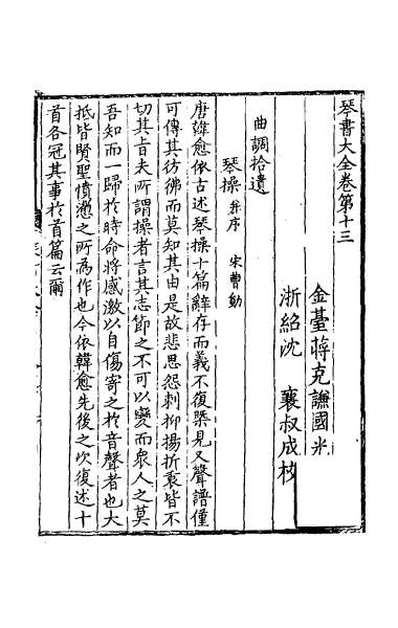 琴書大全卷第十三
金臺蔣克謙國光
浙紹沈襄叔成校
曲調拾遺
琴操并序 宋曹勛
唐韓愈依古述琴操十篇辭存而義不復槩見又聲譜僅
可傳其彷彿而莫知其由是故悲思怨刺抑揚折衷皆不
切其旨夫所謂操者言其志節之不可以變而衆人之莫
吾知而一歸於時命將感激以自傷寄之於音聲者也大
抵皆賢聖憤懣之所為作也今依韓愈先後之次復述十
首各冠其事於首篇云爾